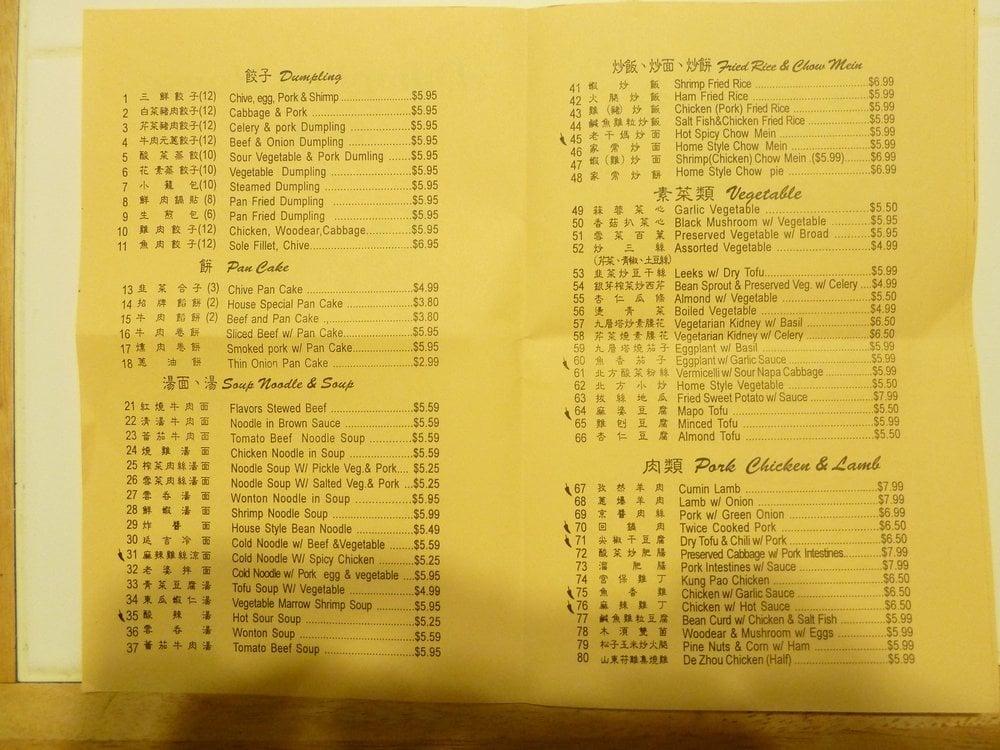 餃子 Dumpling
1 三鮮餃子(12) Chive, egg, Pork & Shimp ........ $5.95
2 白菜豬肉餃子(12) Cabbage & Pork ........ $5.95
3 芹菜豬肉餃子(12) Celery & pork Dumpling ........ $5.95
4 牛肉元蔥餃子(12) Beef & Onion Dumpling ........ $5.95
5 酸菜蒸餃(10) Sour Vegetable & Pork Dumling ...... $5.95
6 花素蒸餃(10) Vegetable Dumpling ........ $5.95
7 小籠包(10) Steamed Dumpling ........ $5.95
8 鮮肉鍋貼(8) Pan Fried Dumpling ........ $5.95
9 生煎包(6) Pan Fried Dumpling ........ $5.95
10 雞肉餃子(12) Chicken, Woodear,Cabbage ........ $5.95
11 魚肉餃子(12) Sole Fillet, Chive ........ $6.95
餅 Pan Cake
13 韭菜合子(3) Chive Pan Cake ........ $4.99
14 招牌餡餅(2) House Special Pan Cake ........ $3.80
15 牛肉餡餅(2) Beef and Pan Cake ........ $3.80
16 牛肉卷餅 Sliced Beef w/ Pan Cake ........ $5.95
17 燻肉卷餅 Smoked pork w/ Pan Cake ........ $5.95
18 蔥油餅 Thin Onion Pan Cake ........ $2.99
湯面、湯 Soup Noodle & Soup
21 紅燒牛肉面 Flavors Stewed Beef ........ $5.59
22 清湯牛肉面 Noodle in Brown Sauce ........ $5.59
23 蕃茄牛肉面 Tomato Beef Noodle Soup ........ $5.59
24 燒雞湯面 Chicken Noodle in Soup ........ $5.59
25 榨菜肉絲湯面 Noodle Soup W/ Pickle Veg.& Pork.... $5.25
26 雪菜肉絲湯面 Noodle Soup W/ Salted Veg.& Pork ... $5.25
27 雲吞湯面 Wonton Noodle in Soup ........ $5.95
28 鮮蝦湯面 Shrimp Noodle Soup ........ $5.99
29 炸醬面 House Style Bean Noodle ........ $5.49
30 延吉冷面 Cold Noodle w/ Beef &Vegetable ........ $5.59
31 麻辣雞絲涼面 Cold Noodle W/ Spicy Chicken ........ $5.25
32 老婆拌面 Cold Noodle w/ Pork egg & vegetable .... $5.95
33 青菜豆腐湯 Tofu Soup W/ Vegetable ........ $4.99
34 東瓜蝦仁湯 Vegetable Marrow Shrimp Soup ........ $5.95
35 酸辣湯 Hot Sour Soup ........ $5.25
36 雲吞湯 Wonton Soup ........ $5.59
37 蕃茄牛肉湯 Tomato Beef Soup ........ $5.95
炒飯、炒面、炒餅 Fried Rice & Chow Mein
41 蝦炒飯 Shrimp Fried Rice ........ $6.99
42 火腿炒飯 Ham Fried Rice ........ $5.95
43 雞(豬)炒飯 Chicken (Pork) Fried Rice ........ $5.95
44 鹹魚雞粒炒飯 Salt Fish&Chicken Fried Rice ........ $5.95
45 老干媽炒面 Hot Spicy Chow Mein ........ $5.95
46 家常炒面 Home Style Chow Mein ........ $5.95
47 蝦(雞)炒面 Shrimp(Chicken) Chow Mein .($5.99) ........ $6.99
48 家常炒餅 Home Style Chow pie ........ $6.99
素菜類 Vegetable
49 蒜蓉菜心 Garlic Vegetable ........ $5.50
50 香菇扒菜心 Black Mushroom w/ Vegetable ........ $5.95
51 雪菜百葉 Preserved Vegetable w/ Broad ........ $5.95
52 炒三絲 Assorted Vegetable ........ $4.99
(芹菜、青椒、土豆絲)
53 韭菜炒豆干絲 Leeks w/ Dry Tofu ........ $5.99
54 銀芽榨菜炒西芹 Bean Sprout & Preserved Veg. w/ Celery .... $4.99
55 杏仁瓜條 Almond w/ Vegetable ........ $5.50
56 燙青菜 Boiled Vegetable ........ $4.99
57 九層塔炒素腰花 Vegetarian Kidney w/ Basil ........ $6.50
58 芹菜燒素腰花 Vegetarian Kidney w/ Celery ........ $6.50
59 九層塔燒茄子 Eggplant w/ Basil ........ $5.99
60 魚香茄子 Eggplant w/ Garlic Sauce ........ $5.99
61 北方酸菜粉絲 Vermicelli w/ Sour Napa Cabbage ........ $5.99
62 北方小炒 Home Style Vegetable ........ $5.50
63 拔絲地瓜 Fried Sweet Potato w/ Sauce ........ $7.99
64 麻婆豆腐 Mapo Tofu ........ $5.50
65 雞刨豆腐 Minced Tofu ........ $5.99
66 杏仁豆腐 Almond Tofu ........ $5.50
肉類 Pork Chicken & Lamb
67 孜然羊肉 Cumin Lamb ........ $7.99
68 蔥爆羊肉 Lamb w/ Onion ........ $7.99
69 京醬肉絲 Pork w/ Green Onion ........ $7.99
70 回鍋肉 Twice Cooked Pork ........ $6.50
71 尖椒干豆腐 Dry Tofu & Chili w/ Pork ........ $6.50
72 酸菜炒肥腸 Preserved Cabbage w/ Pork Intestines ........ $7.99
73 溜肥腸 Pork Intestines w/ Sauce ........ $7.99
74 宮保雞丁 Kung Pao Chicken ........ $6.50
75 魚香雞 Chicken w/ Garlic Sauce ........ $6.50
76 麻辣雞丁 Chicken w/ Hot Sauce ........ $6.50
77 鹹魚雞粒豆腐 Bean Curd w/ Chicken & Salt Fish ........ $5.99
78 木須雙菌 Woodear & Mushroom w/ Eggs ........ $5.99
79 松子玉米炒火腿 Pine Nuts & Corn w/ Ham ........ $5.99
80 山東符離集燒雞 De Zhou Chicken (Half) ........ $5.99